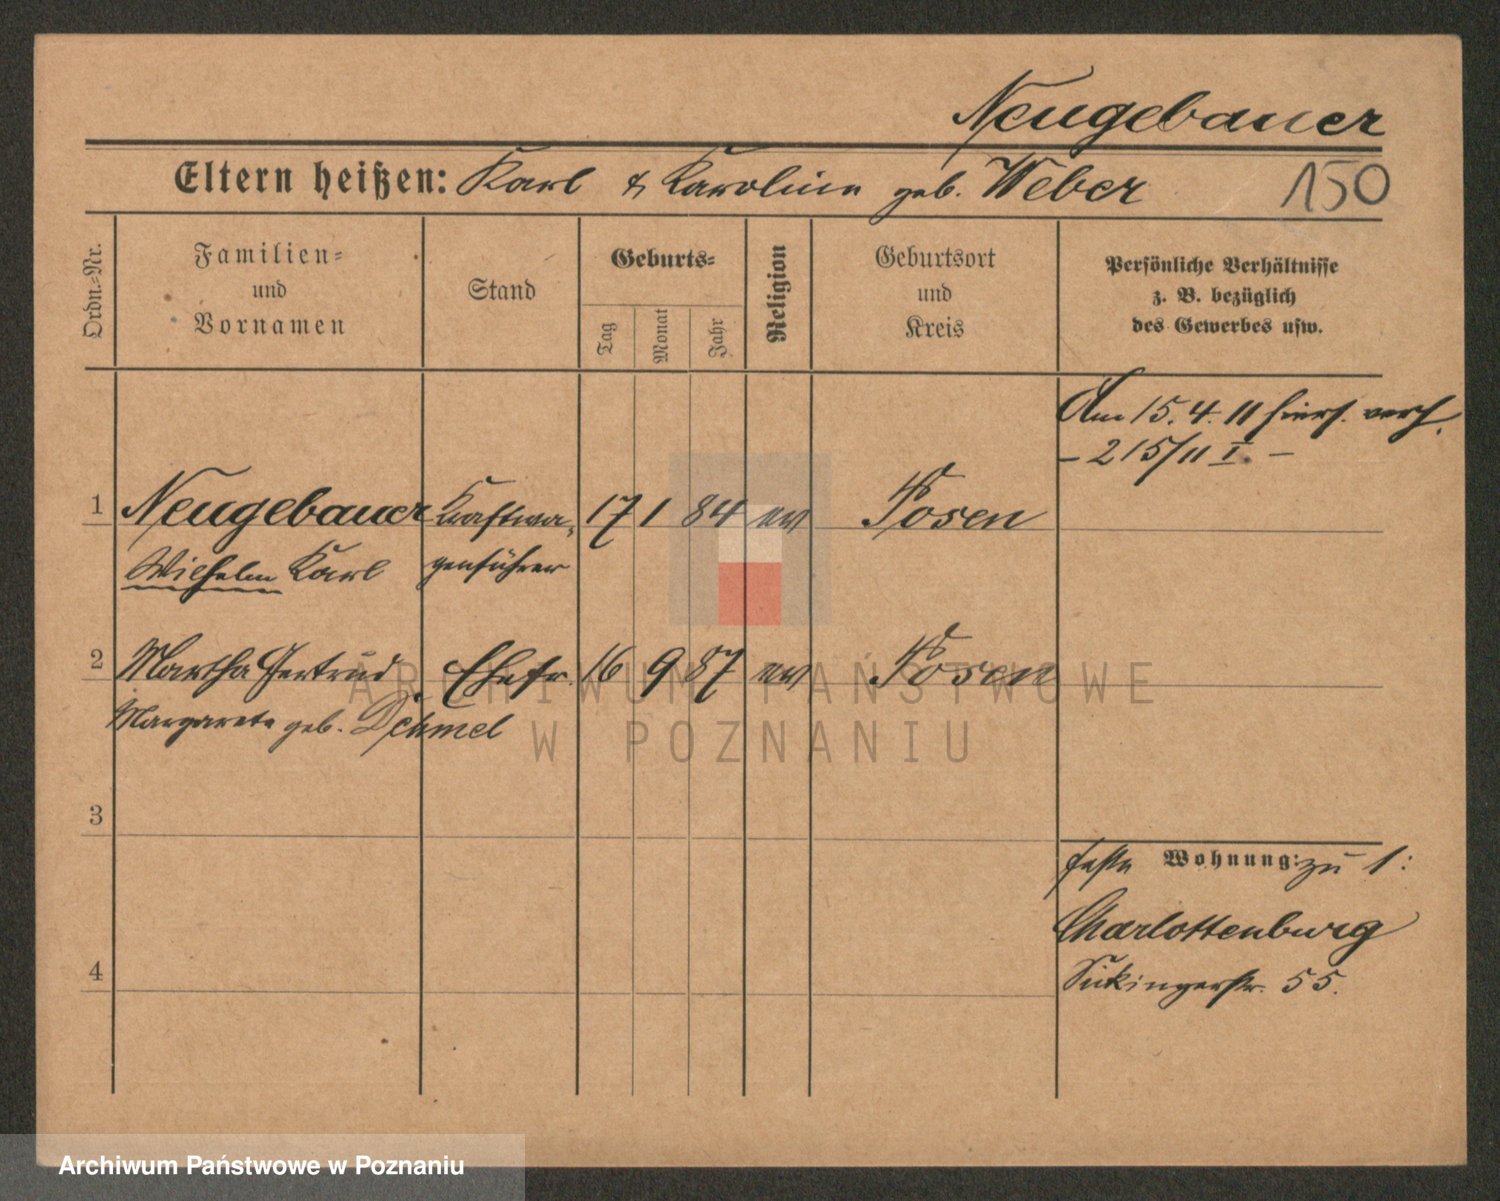 Neugebauer
150
Eltern heißen: Karl & Karoline geb. Weber
Ordn.-Nr.
Familien-
und
Vornamen
Stand
Geburts-
Tag
Monat
Jahr
Religion
Geburtsort
und
Kreis
Persönliche Verhältnisse
z. B. bezüglich
des Gewerbes usw.
Am 15. 4. 11 hiers. verh.
- 215/11 I. -
1 Neugebauer Kraftwa- 17 1 84 ev Posen
Wilhelm Karl genführer
2 Martha Gertrud Ehefr. 16 9 87 ev Posen
Margarete geb. Dehmel
3
feste Wohnung: zu 1:
Charlottenburg
4
Sickingerstr. 55.
ARCHIWUM PAŃSTWOWE
W POZNANIU
Archiwum Państwowe w Poznaniu